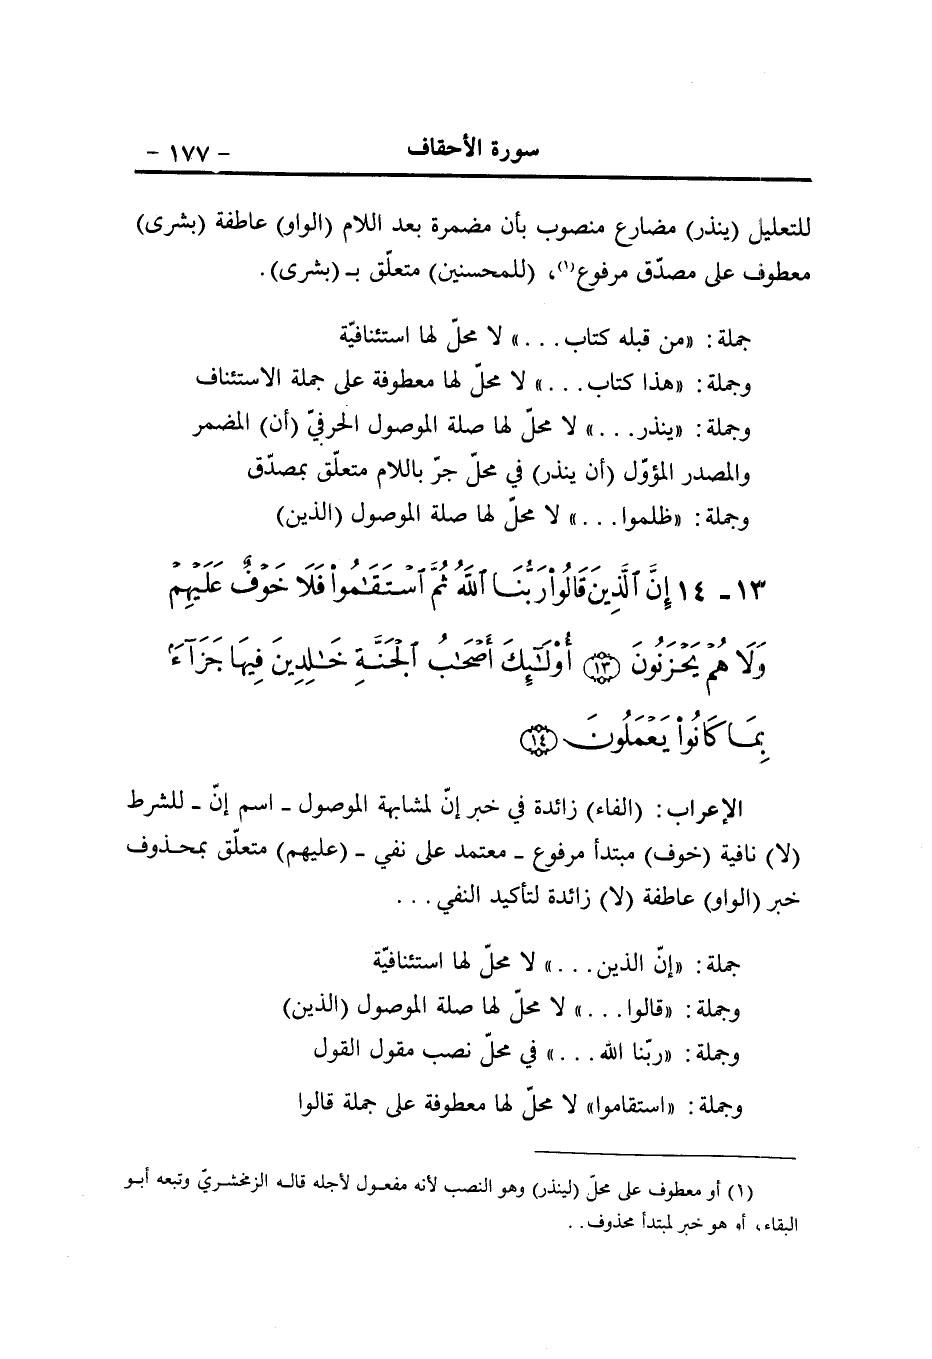 سورة الأحقاف - ١٧٧ -
للتعليل (ينذر) مضارع منصوب بأن مضمرة بعد اللام (الواو) عاطفة (بشرى)
معطوف على مصدّق مرفوع(١)، (للمحسنين) متعلّق بـ (بشرى).
جملة: «من قبله كتاب...» لا محلّ لها استئنافيّة
وجملة: «هذا كتاب...» لا محلّ لها معطوفة على جملة الاستئناف
وجملة: «ينذر...» لا محلّ لها صلة الموصول الحرفيّ (أن) المضمر
والمصدر المؤوّل (أن ينذر) في محلّ جرّ باللام متعلّق بمصدّق
وجملة: «ظلموا...» لا محلّ لها صلة الموصول (الذين)
١٣ - ١٤ إِنَّ ٱلَّذِينَ قَالُوا۟ رَبُّنَا ٱللَّهُ ثُمَّ ٱسْتَقَٰمُوا۟ فَلَا خَوْفٌ عَلَيْهِمْ
وَلَا هُمْ يَحْزَنُونَ ﴿١٣﴾ أُو۟لَٰٓئِكَ أَصْحَٰبُ ٱلْجَنَّةِ خَٰلِدِينَ فِيهَا جَزَآءًۢ
بِمَا كَانُوا۟ يَعْمَلُونَ ﴿١٤﴾
الإعراب: (الفاء) زائدة في خبر إنّ لمشابهة الموصول ـ اسم إنّ ـ للشرط
(لا) نافية (خوف) مبتدأ مرفوع ـ معتمد على نفي ـ (عليهم) متعلّق بمحذوف
خبر (الواو) عاطفة (لا) زائدة لتأكيد النفي...
جملة: «إنّ الذين...» لا محلّ لها استئنافيّة
وجملة: «قالوا...» لا محلّ لها صلة الموصول (الذين)
وجملة: «ربّنا الله...» في محلّ نصب مقول القول
وجملة: «استقاموا» لا محلّ لها معطوفة على جملة قالوا
(١) أو معطوف على محلّ (لينذر) وهو النصب لأنه مفعول لأجله قاله الزمخشريّ وتبعه أبو
البقاء، أو هو خبر لمبتدأ محذوف..